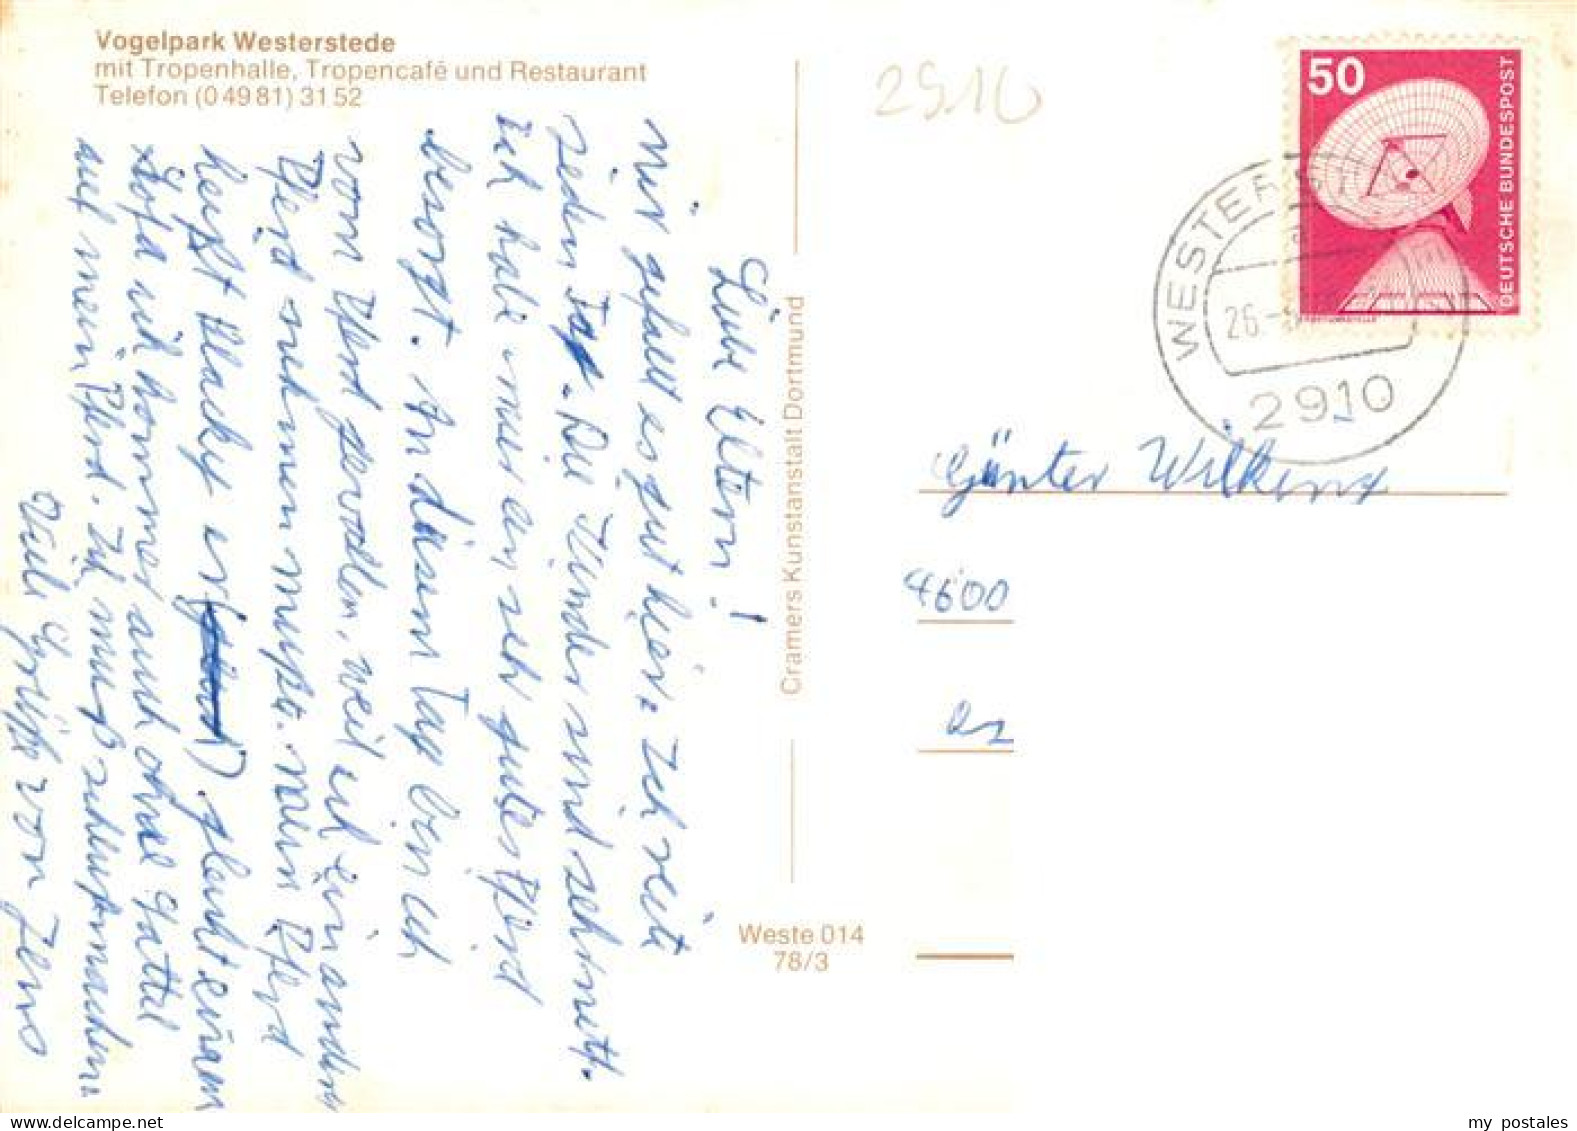 Vogelpark Westerstede
mit Tropenhalle, Tropencafé und Restaurant
Telefon (0 49 81) 31 52
Liebe Eltern!
Mir gefällt es gut hier. Ich reite
jeden Tag. Die Kinder sind sehr nett.
Ich habe immer ein sehr gutes Pferd
besorgt. An diesem Tag bin ich
vom Pferd gevallen, weil ich ein anderes
Pferd nehmen mußte. Mein Pferd
heißt Blacky er
auf mein Pferd. Ich muß schluß machen.
Viele Grüße von Jens
Cramers Kunstanstalt Dortmund
Weste 014
78/3
2910
50
DEUTSCHE BUNDESPOST
WESTERST
26.-
2910
Günter Wilkens
4600
my postales